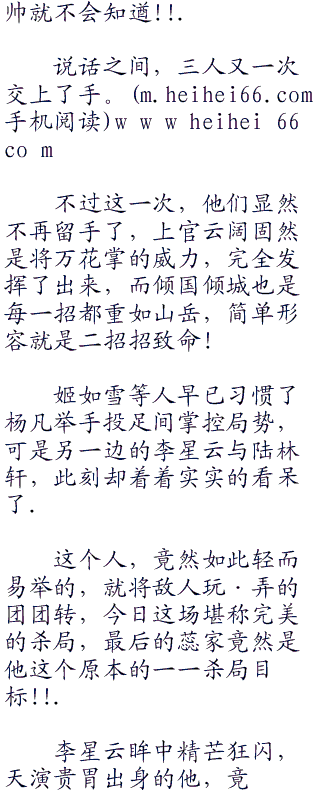 帅就不会知道!!.
说话之间，三人又一次
交上了手。(m.heihei66.com
手机阅读)w w w heihei 66
co m
不过这一次，他们显然
不再留手了，上官云阔固然
是将万花掌的威力，完全发
挥了出来，而倾国倾城也是
每一招都重如山岳，简单形
容就是二招招致命!
姬如雪等人早已习惯了
杨凡举手投足间掌控局势，
可是另一边的李星云与陆林
轩，此刻却着着实实的看呆
了.
这个人，竟然如此轻而
易举的，就将敌人玩·弄的
团团转，今日这场堪称完美
的杀局，最后的蕊家竟然是
他这个原本的一一杀局目
标!!.
李星云眸中精芒狂闪，
天演贵胄出身的他，竟